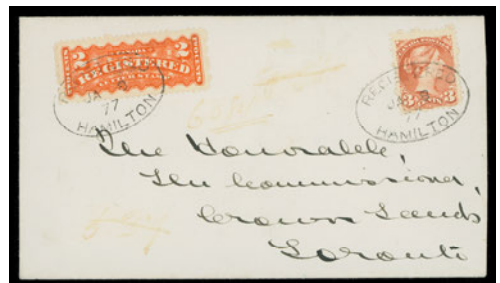 2 REGISTERED 2
REGISTERED
JA 8
77
HAMILTON
3 3
REGISTERED
JA 8
77
HAMILTON
The Honorable,
The Commissioner,
Crown Lands
Toronto